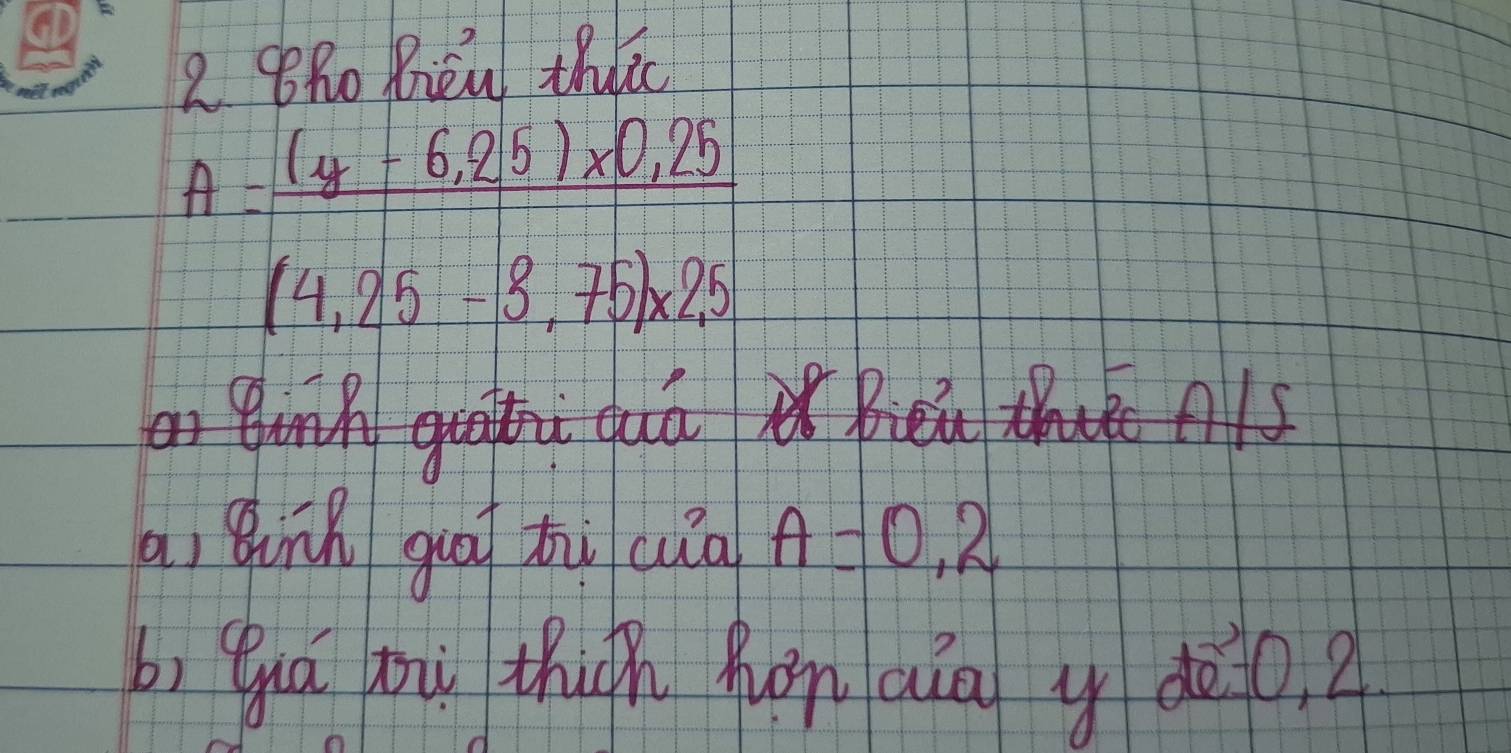 GD
2. Cho biểu thức
A = (y - 6,25) x 0,25
(4,25 - 3,75) x 2,5
a) Tính giá trị của biểu thức A / S
a) Tính giá trị của A = 0,2
b) Giá trị thích hợp của y để = 0,2